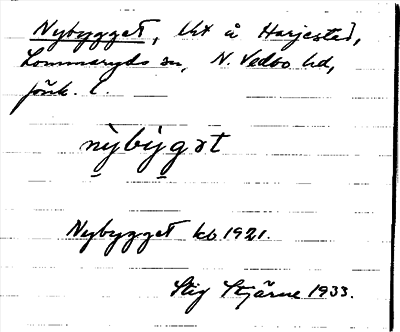 Nybygget, Ut å Harjestad,
Lommaryds sn, N. Vedbo hd,
Jönk. l.
nỳby̬gət
Nybygget kb 1921.
Stig Stjärne 1933.